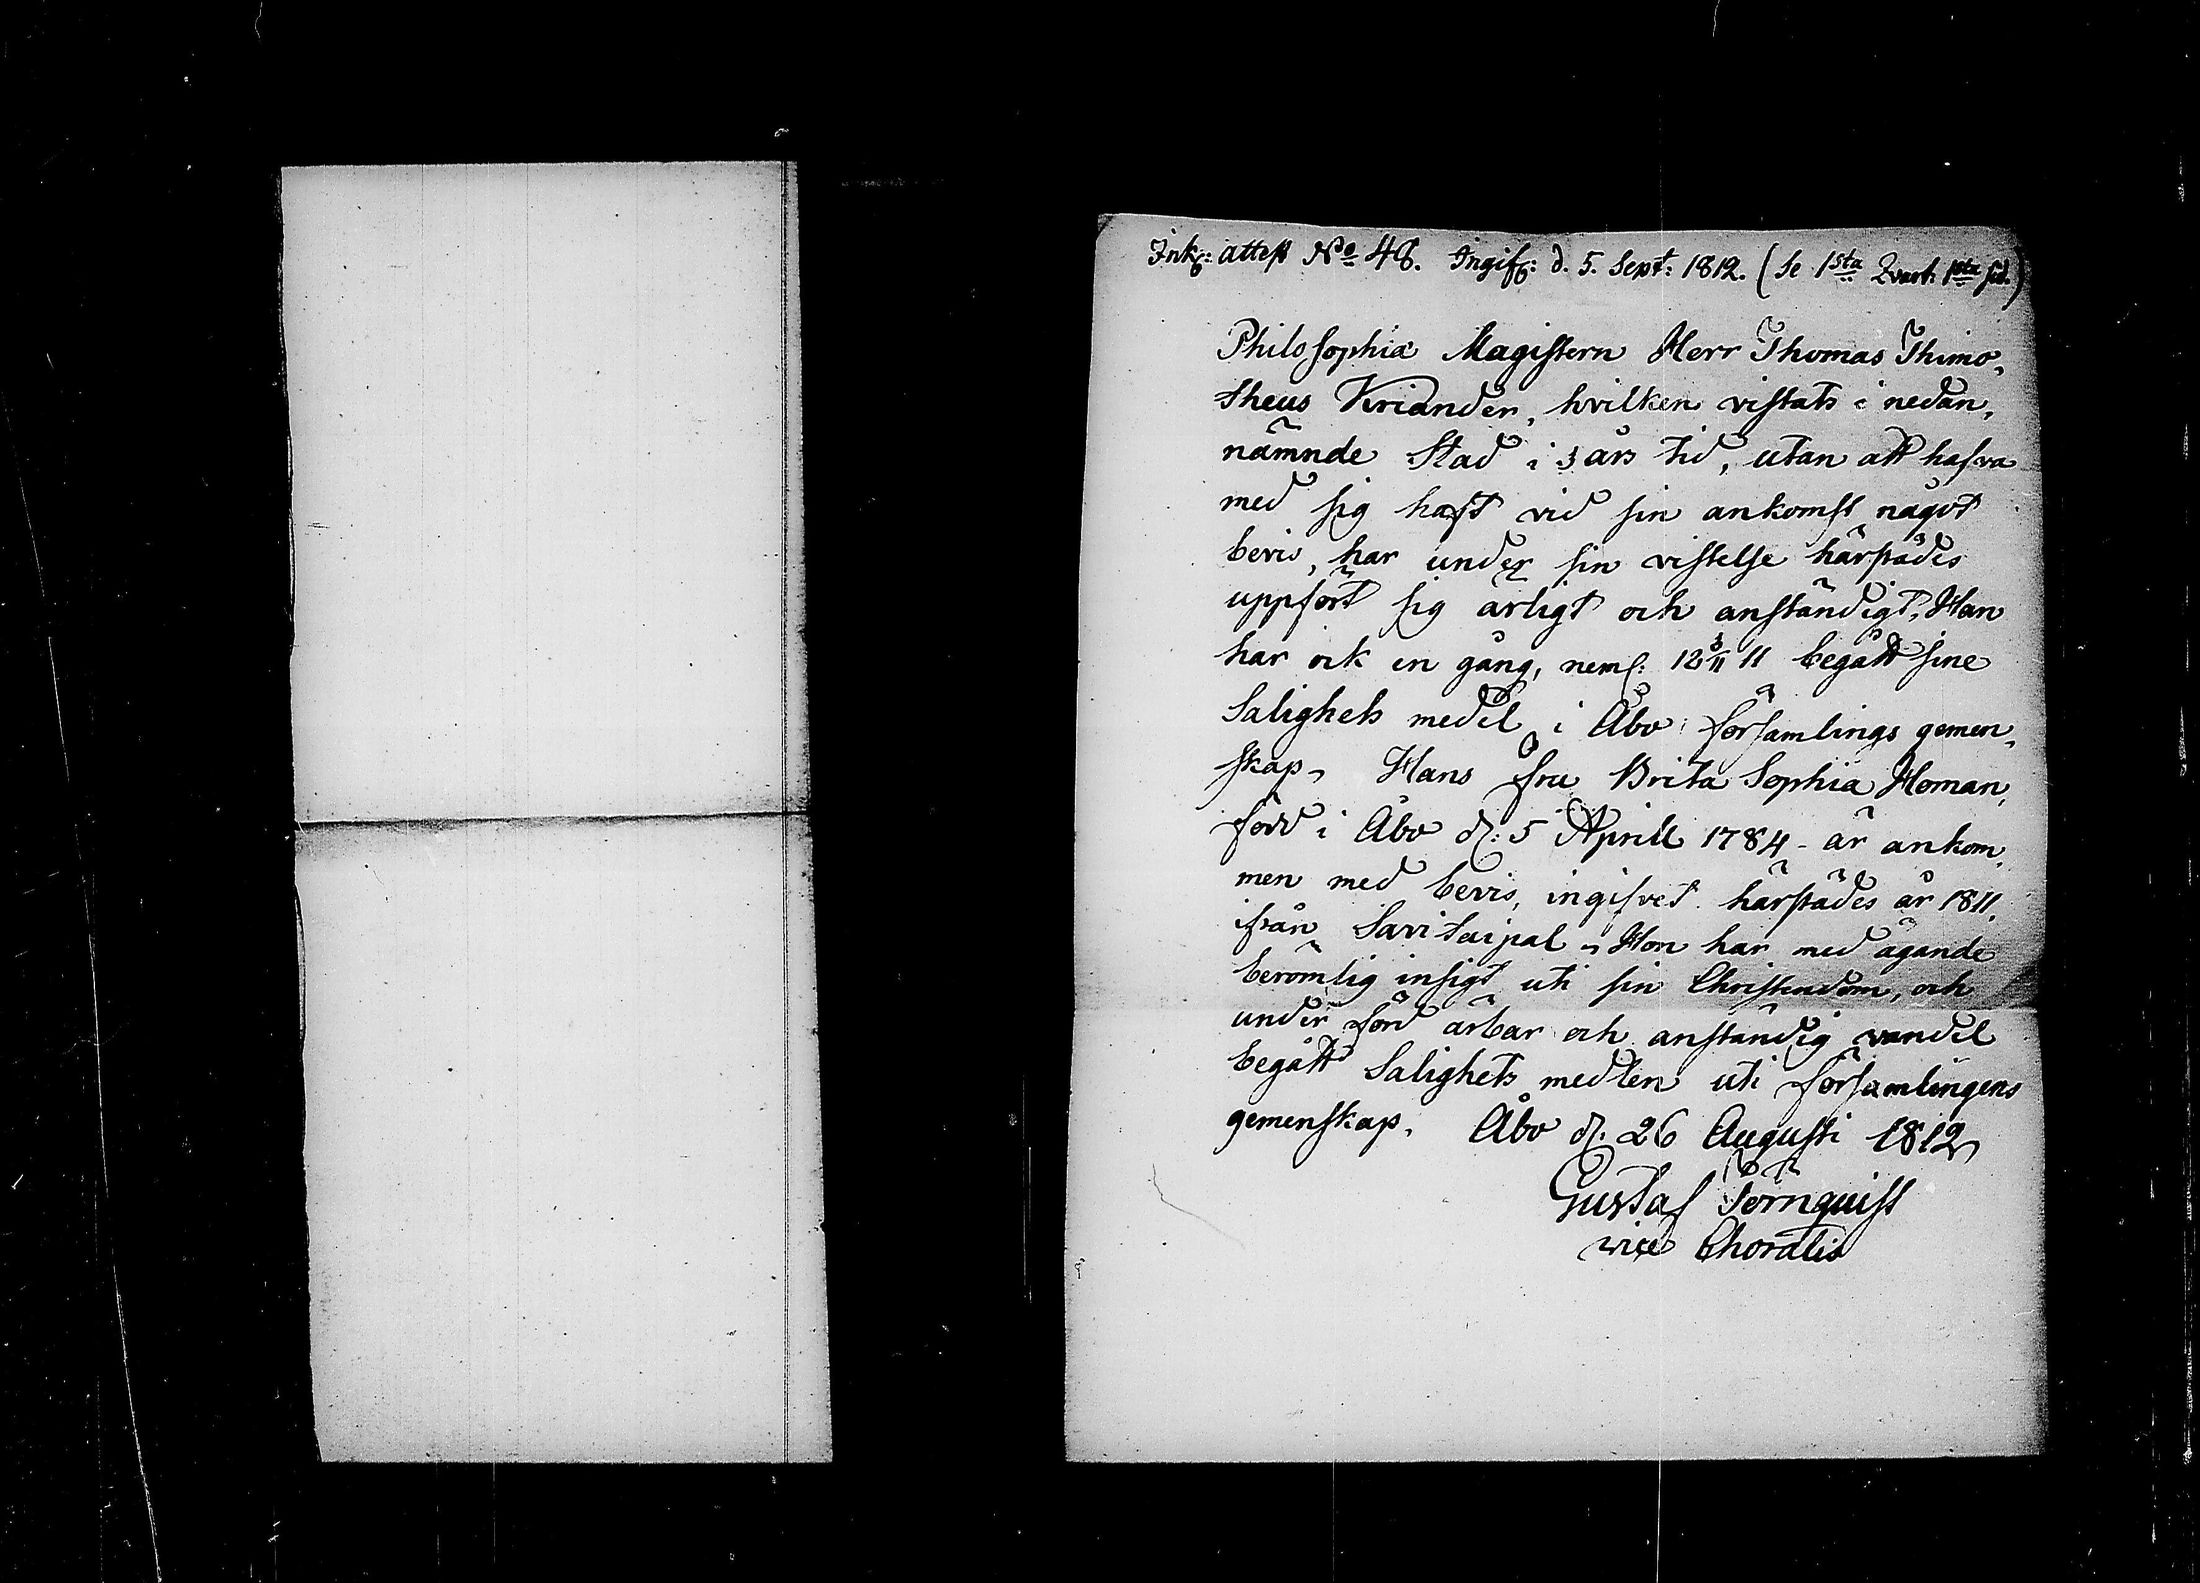 Ink: attest No 48. Ingif: d. 5. Sept: 1812. (Se 1sta Qvart. 1sta sid.)
Philosophiæ Magistern Herr Thomas Thimo-
theus Kriander, hvilken vistats i nedan-
nämnde Stad i 3 års tid, utan att hafva
med sig haft vid sin ankomst något
bevis, har under sin vistelse härstädes
uppfört sig ärligt och anständigt. Han
har ock en gång, neml: 12 3/11 11 begått sine
Salighets medel i Åbo församlings gemen-
skap. Hans fru Brita Sophia Homan,
född i Åbo d: 5 Aprill 1784 - är ankom-
men med bevis, ingifvet härstädes år 1811,
ifrån Savitaipal. Hon har med ägande
berömlig insigt uti sin Christendom, och
under förd ärbar och anständig vandel
begått Salighets medlen uti församlingens
gemenskap. Åbo d. 26 Augusti 1812
Gustaf Törnquist
vice Choralis